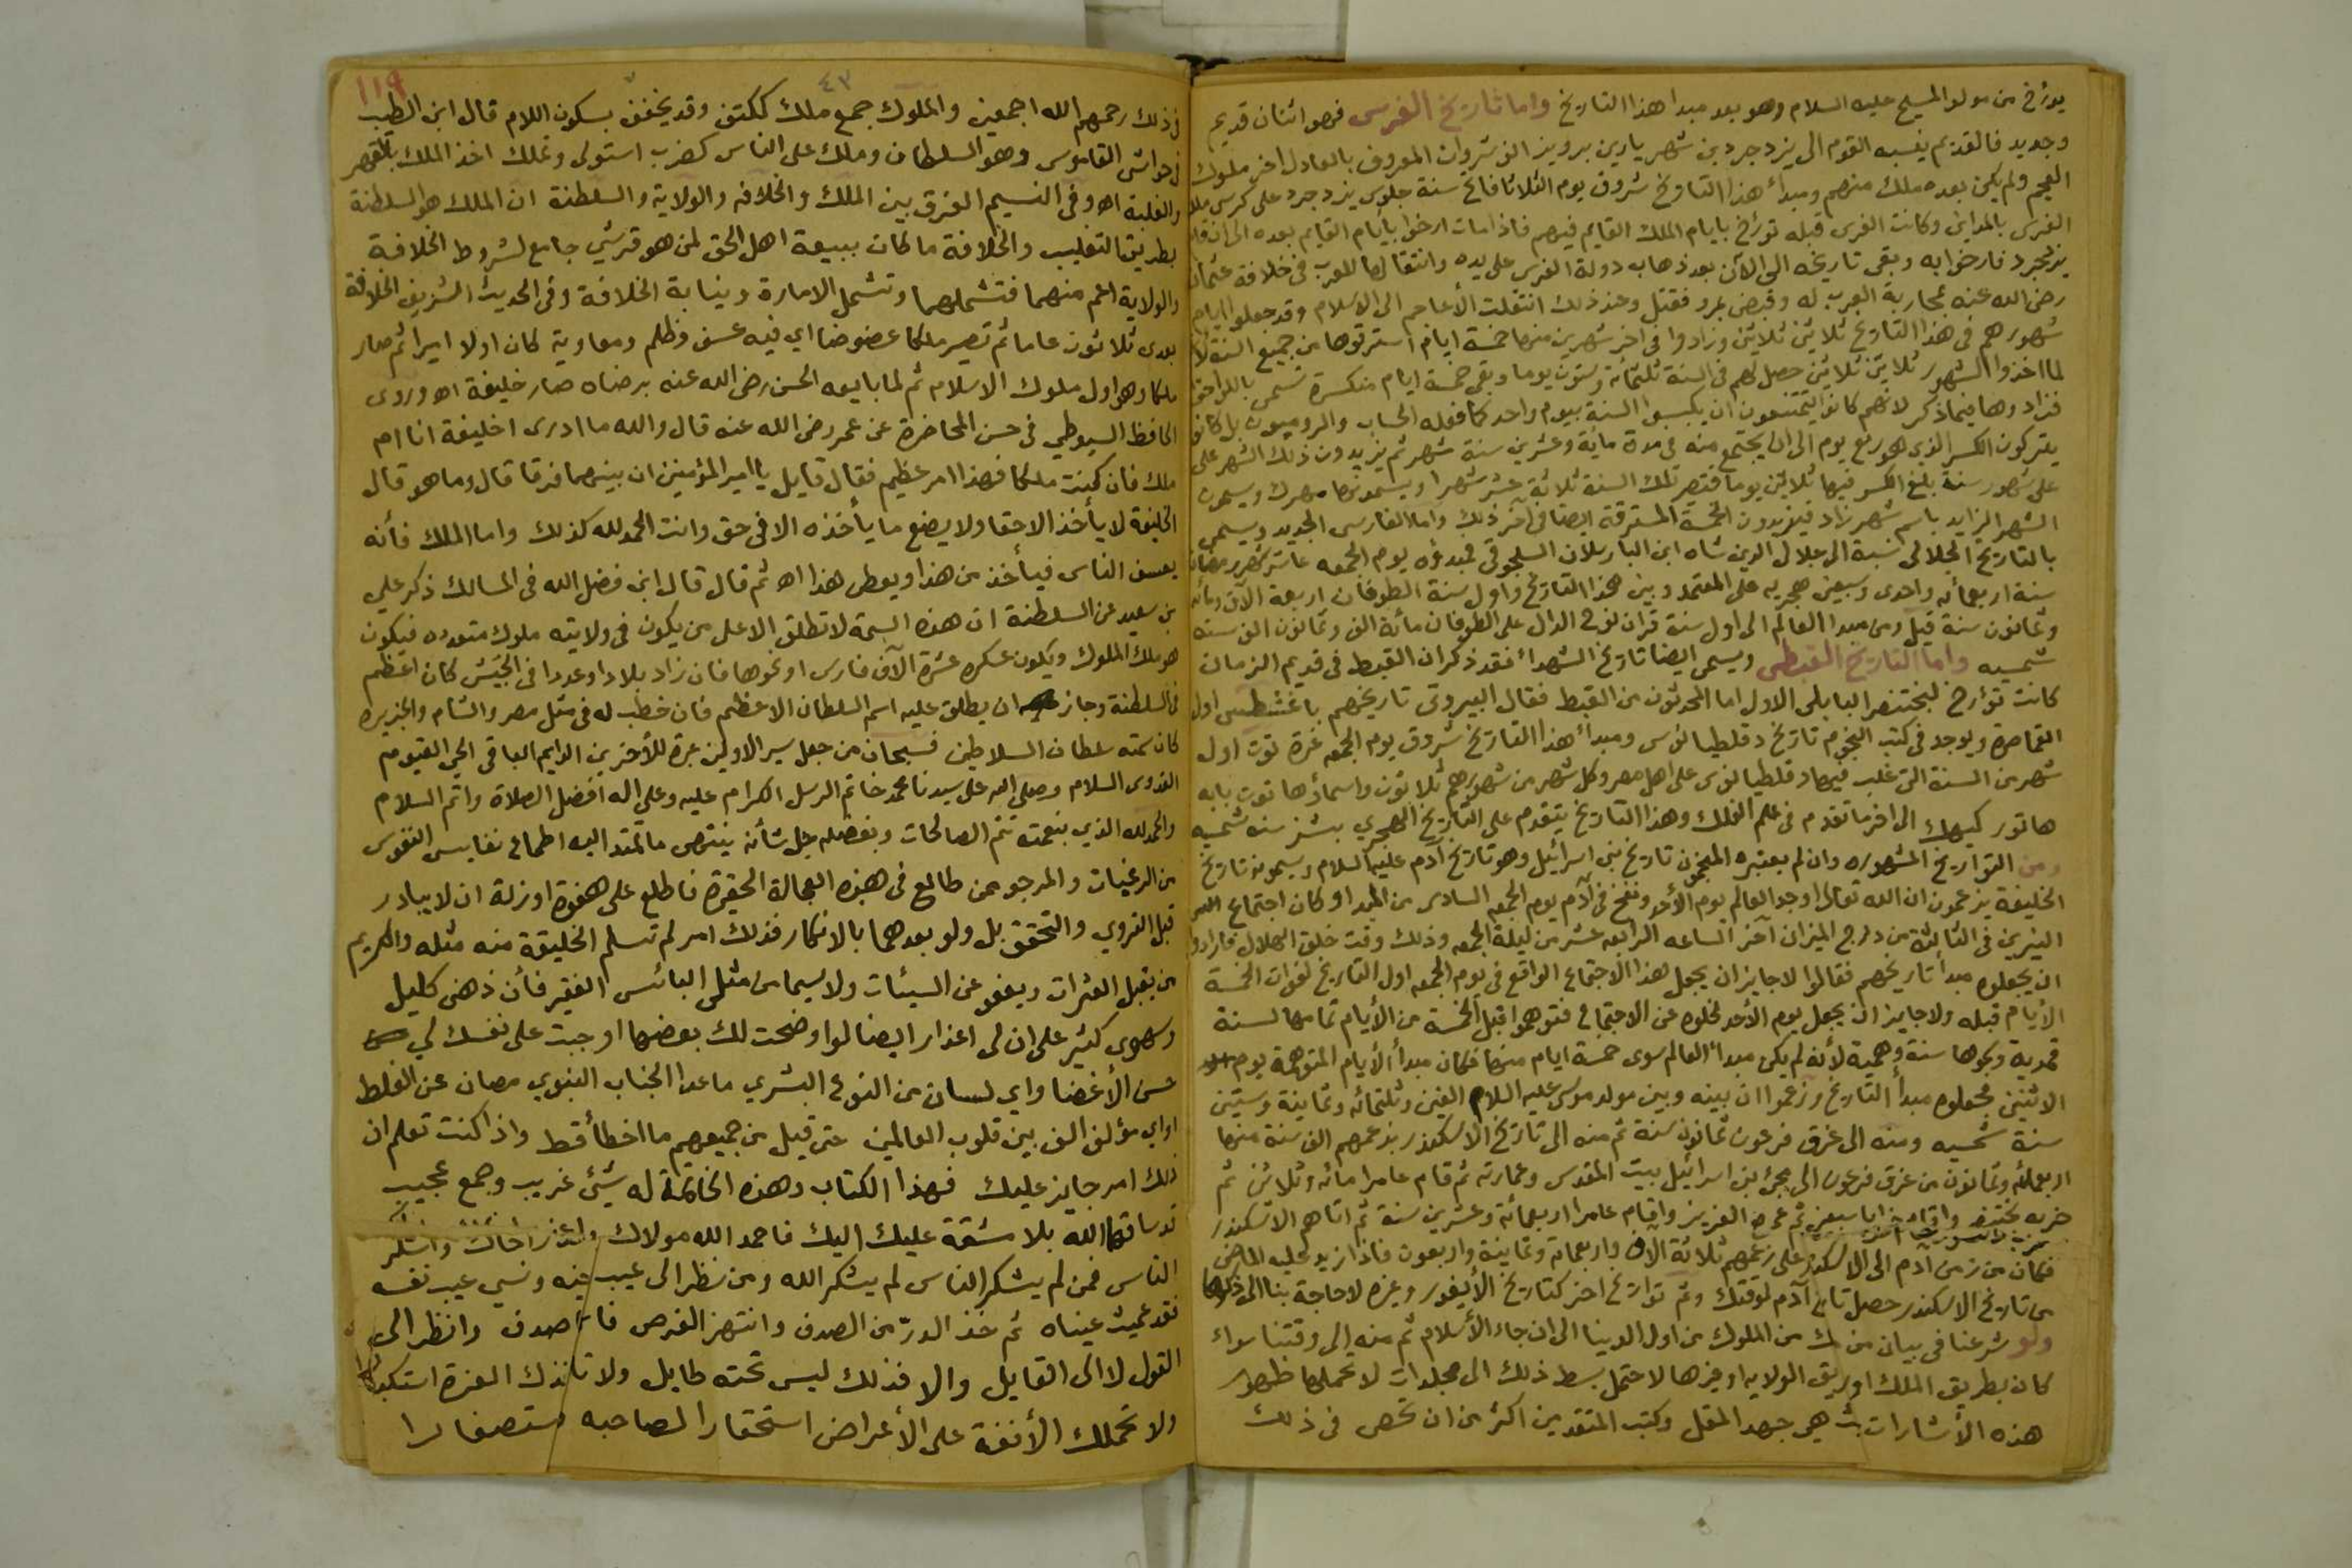 يورخ من مولد المسيح عليه السلام وهو بعد مبدا هذا التاريخ واما تاريخ الفرس فهو اثنان قديم
وجديد فالقديم ينسبه القوم الى يزدجرد بن شهريار بن برويز انوشروان المعروف بالعادل اخر ملوك
العجم ولم يكن بعده ملك منهم ومبدأ هذا التاريخ شروق يوم الثلاثا فاتح سنة جلوس يزدجرد على كرسي
الفرس بالمداين وكانت الفرس قبله تورخ بايام الملك القايم فيهم فاذا مات ارخوا بأيام القايم بعده الى ان قام
يزدجرد فارخوا به وبقى تاريخه الى الآن بعد ذهاب دولة الفرس على يده وانتقالها للعرب في خلافة عثمان
رضى الله عنه بمحاربة العرب له وقبض بمرو فقتل وعند ذلك انتقلت الأعاجم الى الاسلام وقد جعلوا ايام
شهورهم في هذا التاريخ ثلاثين ثلاثين وزادوا في اخر شهرين منها خمسة ايام استرقوها من جميع السنة
لما اخذوا الشهور ثلاثين ثلاثين حصل لهم في السنة ثلثمائة وستون يوما وبقى خمسة ايام منكسرة تسمى باللواحق
فزادوها فيما ذكر لانهم كانوا يمتنعون ان يكبسوا السنة بيوم واحد كما فعله الحساب والروميون بل كانوا
يتركون الكسر الذي هو ربع يوم الى ان يجتمع منه في مدة ماية وعشرين سنة شهر ثم يزيدون ذلك الشهر على
على شهور سنة بلغ الكسر فيها ثلاثين يوما فتصير تلك السنة ثلاثة عشر شهرا ويسمونها بهزك ويسمون
الشهر الزايد باسم شهر زاد فيزيدون الخمسة المسترقة ايضا في اخر ذلك واما الفارسى الجديد ويسمى
بالتاريخ الجلالي نسبة الى جلال الدين شاه ابن البارسلان السلجوقي فمبدؤه يوم الجمعه عاشر شهر رمضان
سنة اربعمائه واحدى وسبعين هجريه على المعتمد وبين هذا التاريخ واول سنة الطوفان اربعة آلاف ومائه
وثمانون سنة قيل ومن مبدا العالم الى اول سنة قران نوح الدال على الطوفان مائة الف وثمانون الف سنه
شمسيه واما التاريخ القبطى ويسمى ايضا تاريخ الشهداء فقد ذكر ان القبط في قديم الزمان
كانت تؤرخ لبختنصر البابلى الاول اما المحدثون من القبط فقال البيروتى تاريخهم باغشطس اول
القياصرة ويوجد في كتب النجوم تاريخ دقلطيانوس ومبدأ هذا التاريخ شروق يوم الجمعه غرة توت اول
شهر من السنة التى غلب فيها دقلطيانوس على اهل مصر وكل شهر من شهورهم ثلاثون واسماؤها توت بابه
هاتور كيهك الى اخر ما تقدم في علم الفلك وهذا التاريخ يتقدم على التاريخ الهجري بشز سنه شمسيه
ومن التواريخ المشهوره وان لم يعتبره المنجمون تاريخ بنى اسرائيل وهو تاريخ آدم عليه السلام ويسمونه تاريخ
الخليفة يزعمون ان الله تعالى اوجد العالم يوم الأحد ونفخ في آدم يوم الجمعه السادس من المبدا وكان اجتماع
النيرين في الثالثة من درج الميزان آخر الساعه الرابعه عشر من ليلة الجمعه وذلك وقت خلق الهلال فارادوا
ان يجعلوه مبدأ تاريخهم فقالوا لا جايز ان يجعل هذا الاجتماع الواقع في يوم الجمعه اول التاريخ لفوات الخمسة
الأيام قبله ولا جايز ان يجعل يوم الأحد لخلوه عن الاجتماع فتوهموا قبل الخمسة من الأيام تمامها لسنة
قمرية وبكوها سنة وهمية لأنه لم يكن مبدأ العالم سوى خمسة ايام منها فكان مبدأ الأيام المتوهمة يوم
الاثنين فجعلوه مبدأ التاريخ وزعموا ان بينه وبين مولد موسى عليه السلام الفين وثلثمائه وثمانية وستين
سنة شمسيه ومنه الى غرق فرعون ثمانون سنة ثم منه الى تاريخ الاسكندر بزعمهم الف سنة منها
اربعمائه وثمانون من غرق فرعون الى مجئ بنى اسرائيل بيت المقدس وعمارته ثم قام عامرا مائه وثلاثين ثم
خربه بختنصر واقام خرابا سبعين ثم عمره العزيز واقام عامرا اربعمائة وعشرين سنة ثم اتاهم الاسكندر
فكان من زمن ادم الى الاسكندر على زعمهم ثلاثة آلاف واربعمائة وثمانية واربعون فاذا زيد عليه الماضى
من تاريخ الاسكندر حصل تاريخ آدم لوقتك وثم تواريخ اخر كتاريخ الأيغور وغيره لا حاجة بنا الى ذكرها
ولو شرعنا في بيان من ملك من الملوك من اول الدينا الى ان جاء الأسلام ثم منه الى وقتنا سواء
كان بطريق الملك او بطريق الولايه او غيرها لاحتمل بسط ذلك الى مجلدات لا تحملها ظهور
هذه الأشارات بث هي جهد المقل وكتب المتقدمين اكثر من ان تحصى في ذلك
٤٣
١١٩
في ذلك رحمهم الله اجمعين والملوك جمع ملك ككتف وقد يخفف بسكون اللام قال ابن الطيب
في حواشى القاموس وهو السلطان وملك على الناس كضرب استولى وتملك اخذ الملك بالقهر
والغلبة اه وفى النسيم الفرق بين الملك والخلافه والولاية والسلطنة ان الملك هو السلطنة
بطريق التغليب والخلافة ما كان ببيعة اهل الحق لمن هو قرشى جامع لشروط الخلافة
والولاية اعم منهما فتشملهما وتشمل الامارة ونيابة الخلافة وفى الحديث الشريف الخلافة
بعدى ثلاثون عاما ثم تصير ملكا عضوضا اي فيه عسف وظلم ومعاوية كان اولا اميرا ثم صار
ملكا وهو اول ملوك الاسلام ثم لما بايعه الحسن رضى الله عنه برضاه صار خليفة اه وروى
الحافظ السيوطي في حسن المحاضرة عن عمر رضى الله عنه قال والله ما ادرى اخليفة انا ام
ملك فان كنت ملكا فهذا امر عظيم فقال قايل يا امير المؤمنين ان بينهما فرقا قال وما هو قال
الخليفة لا يأخذ الا حقا ولا يضع ما يأخذه الا في حق وانت الحمد لله كذلك واما الملك فأنه
يعسف الناس فيأخذ من هذا ويعطى هذا اه ثم قال قال ابن فضل الله في المسالك ذكر علي
بن سعيد عن السلطنة ان هذه السمة لا تطلق الا على من يكون في ولايته ملوك متعدده فيكون
هو ملك الملوك ويكون عسكره عشرة آلاف فارس او نحوها فان زاد بلادا وعددا في الجيش كان اعظم
في السلطنة وجاز ان يطلق عليه اسم السلطان الاعظم فان خطب له في مثل مصر والشام والجزيره
كان سمته سلطان السلاطين فسبحان من جعل سير الاولين عبرة للأخرين الدايم الباقي الحي القيوم
القدوس السلام وصلى الله على سيدنا محمد خاتم الرسل الكرام عليه وعلى اله افضل الصلاة واتم السلام
والحمد لله الذي بنعمته تتم الصالحات وبفضله جل شأنه ينتهى ما تمتد اليه اطماع نفايس النفوس
من الرغبات والمرجو ممن طالع في هذه العجالة الحقيرة فاطلع على هفوة او زلة ان لا يبادر
قبل التروي والتحقق بل ولو بعدهما بالانكار فذلك امر لم تسلم الخليقة منه مثله والكريم
من يقبل العثرات ويعفو عن السيئات ولا سيما من مثلى البائس الفقير فأن ذهنى كليل
وسهوى كثير على ان لى اعذار ايضا لو اوضحت لك بعضها اوجبت على نفسك لي
حسن الأغضا واي لسان من النوع البشري ما عدا الجناب النبوي مصان عن الغلط
او اي مؤلف الف بين قلوب العالمين حتى قيل من جميعهم ما اخطأ قط واذا كنت تعلم ان
ذلك امر جايز عليك فهذا الكتاب وهذه الخاتمة له شئ غريب وجمع عجيب
قد ساقها الله بلا مشقة عليك اليك فاحمد الله مولاك واعذر اخاك واشكر
الناس فمن لم يشكر الناس لم يشكر الله ومن نظر الى عيب غيره ونسي عيب نفسه
فقد عميت عيناه ثم خذ الدر من الصدف وانتهز الفرص فا صدف وانظر الى
القول لا الى القايل والا فذلك ليس تحته طايل ولا تأخذك العزة استكبارا
ولا تحملك الأنفة على الأعراض استحقارا لصاحبه واستصغارا